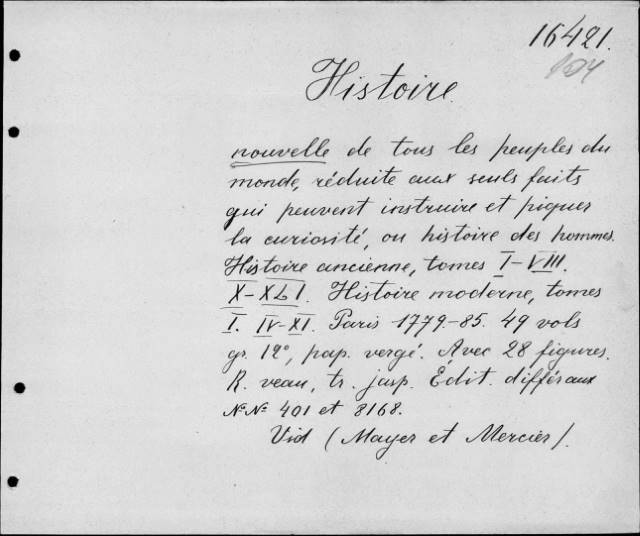 16421.
104
Histoire.
nouvelle de tous les peuples du
monde, réduite aux seuls faits
qui peuvent instruire et piquer
la curiosité, ou histoire des hommes.
Histoire ancienne, tomes I-VIII.
X-XLI. Histoire moderne, tomes
I. IV-XI. Paris 1779-85. 49 vols
gr. 12°, pap. vergé. Avec 28 figures.
R. veau, tr. jasp. Édit. différ. aux
№№ 401 et 8168.
Vid (Mayer et Mercier).